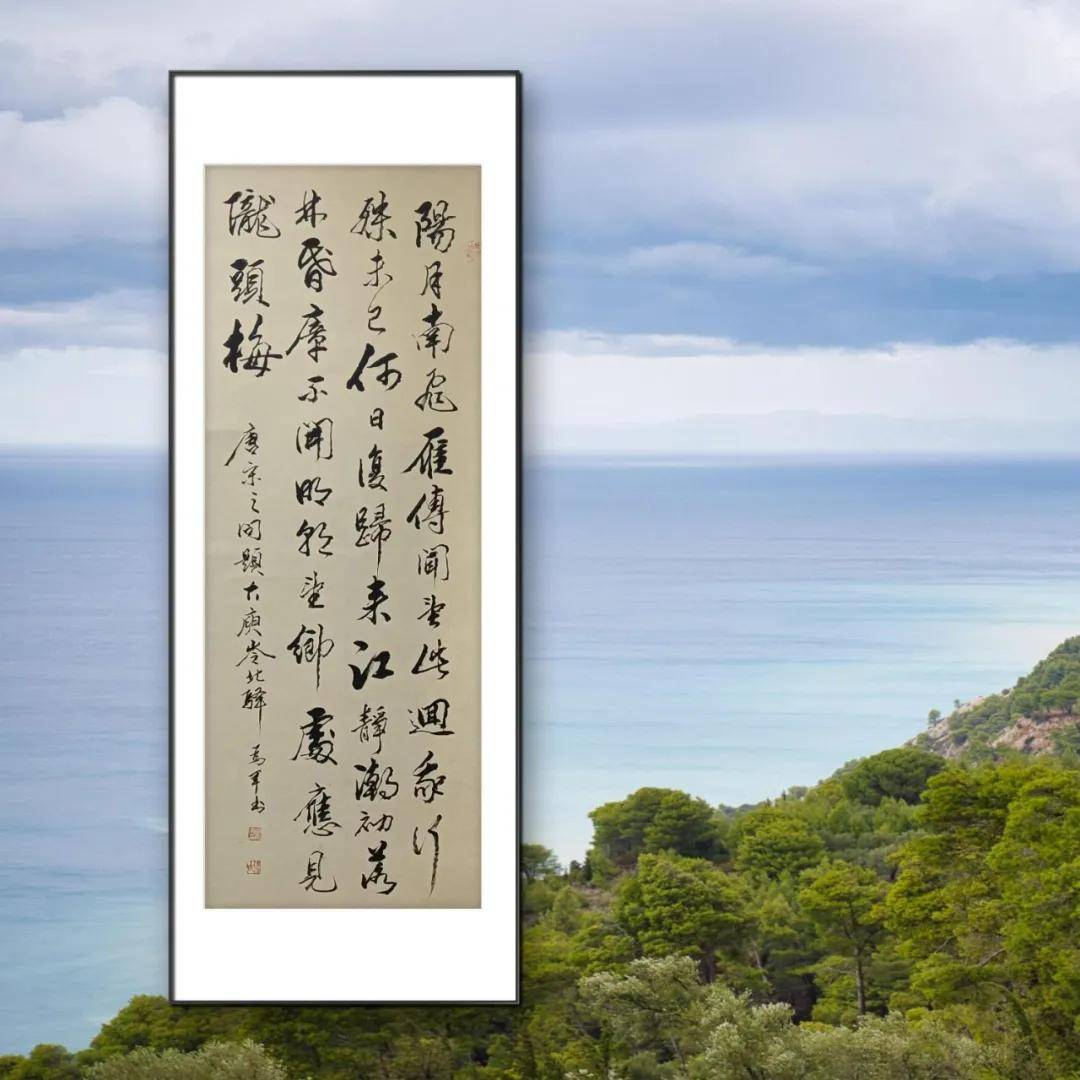 陽月南飛雁傳聞至此迴我行
殊未已何日復歸来江靜潮初落
林昏瘴不開明朝望鄉處應見
隴頭梅
唐宋之问題大庾岺北驛 书